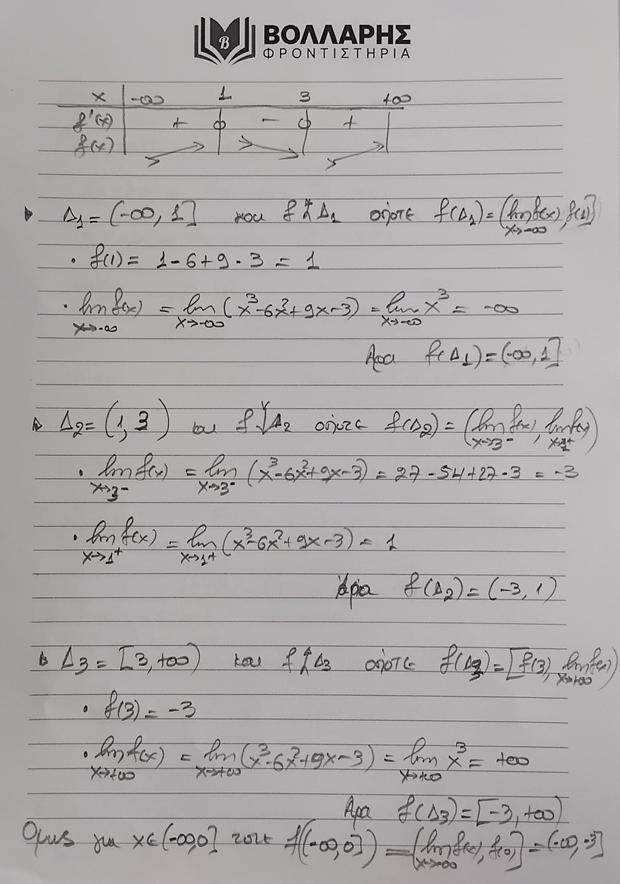 ΒΟΛΛΑΡΗΣ
ΦΡΟΝΤΙΣΤΗΡΙΑ
x -∞ 1 3 +∞
f'(x) + 0 - 0 +
f(x) ↗ ↘ ↗
Δ1 = (-∞, 1] και f ↑ Δ1 οπότε f(Δ1) = (lim f(x), f(1)]
x→-∞
• f(1) = 1-6+9-3 = 1
• lim f(x) = lim (x³-6x²+9x-3) = lim x³ = -∞
x→-∞ x→-∞ x→-∞
Άρα f(Δ1) = (-∞, 1]
Δ2 = (1, 3) και f ↓ Δ2 οπότε f(Δ2) = (lim f(x), lim f(x))
x→3⁻ x→1⁺
• lim f(x) = lim (x³-6x²+9x-3) = 27-54+27-3 = -3
x→3⁻ x→3⁻
• lim f(x) = lim (x³-6x²+9x-3) = 1
x→1⁺ x→1⁺
Άρα f(Δ2) = (-3, 1)
Δ3 = [3, +∞) και f ↑ Δ3 οπότε f(Δ3) = [f(3), lim f(x))
x→+∞
• f(3) = -3
• lim f(x) = lim (x³-6x²+9x-3) = lim x³ = +∞
x→+∞ x→+∞ x→+∞
Άρα f(Δ3) = [-3, +∞)
Όμως για x∈(-∞,0] τότε f((-∞,0]) = (lim f(x), f(0)] = (-∞, -3]
x→-∞